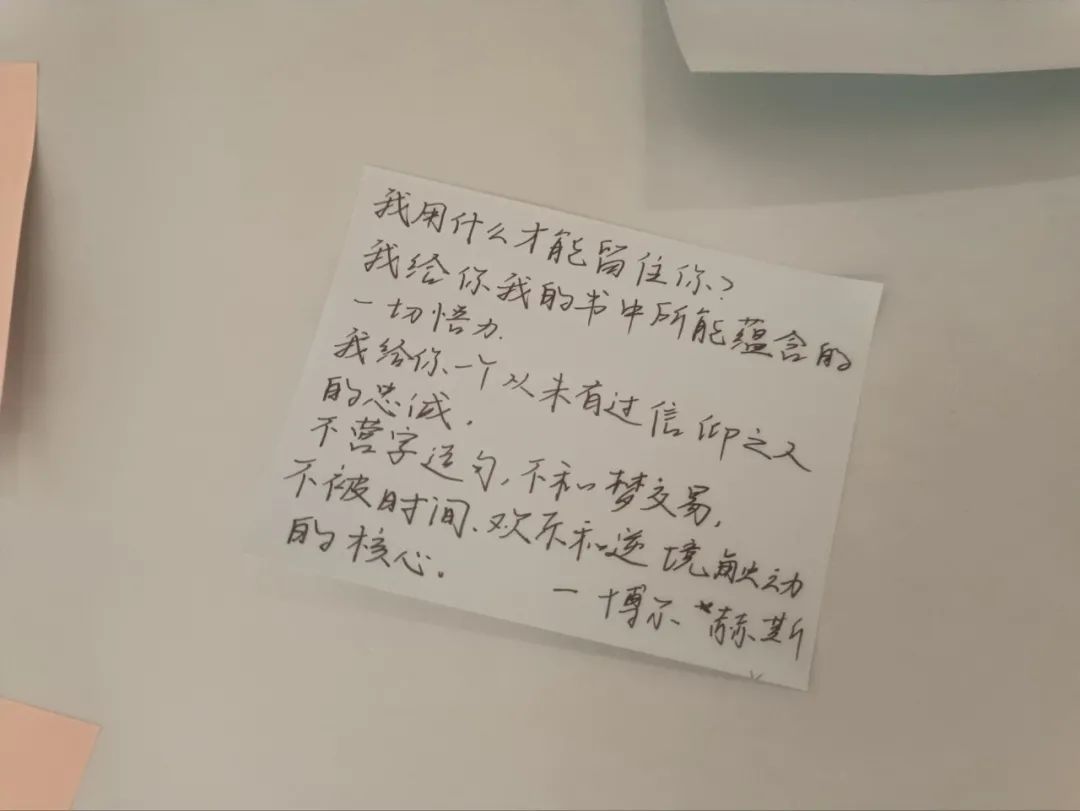 我用什么才能留住你?
我给你我的书中所能蕴含的
一切悟力.
我给你一个从未有过信仰之人
的忠诚,
不营字造句,不和梦交易,
不被时间、欢乐和逆境触动
的核心.
一博尔*赫斯